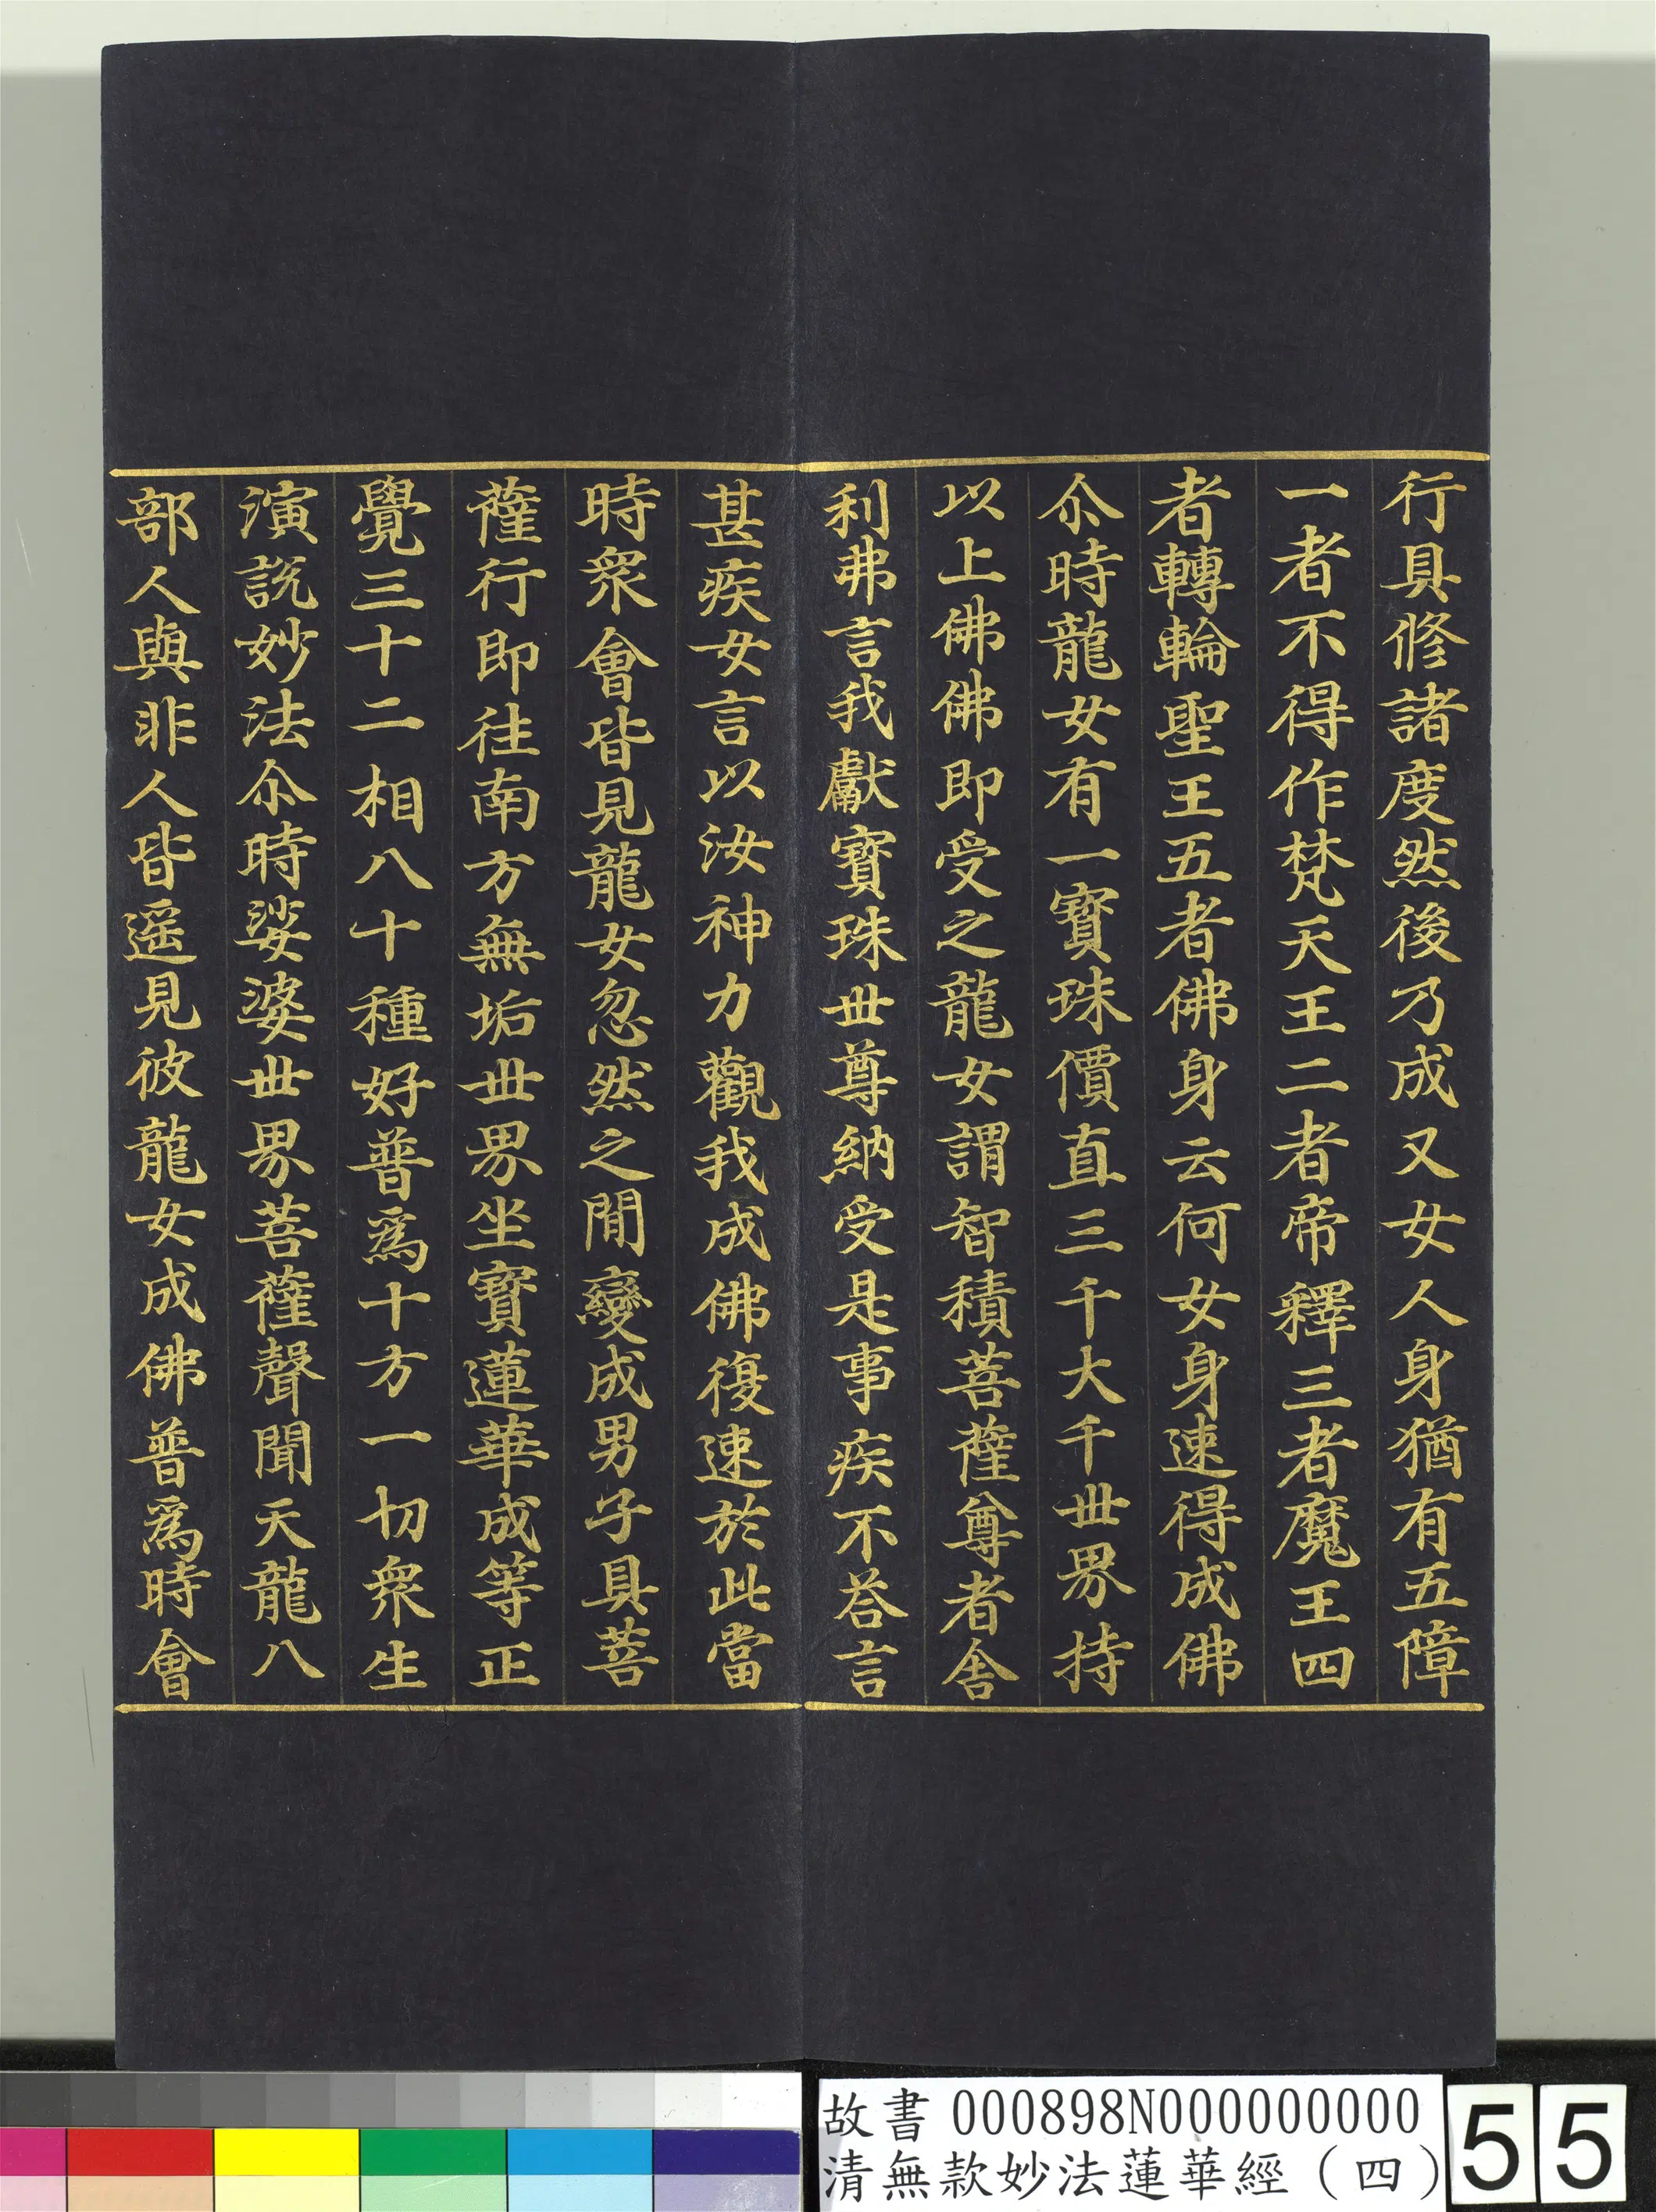 行具修諸度然後乃成又女人身猶有五障
一者不得作梵天王二者帝釋三者魔王四
者轉輪聖王五者佛身云何女身速得成佛
尒時龍女有一寶珠價直三千大千世界持
以上佛佛即受之龍女謂智積菩薩尊者舍
利弗言我獻寶珠世尊納受是事疾不荅言
甚疾女言以汝神力觀我成佛復速於此當
時眾會皆見龍女忽然之間變成男子具菩
薩行即往南方無垢世界坐寶蓮華成等正
覺三十二相八十種好普為十方一切眾生
演說妙法尒時娑婆世界菩薩聲聞天龍八
部人與非人皆遥見彼龍女成佛普為時會
故書 000898N000000000
清無款妙法蓮華經（四）
55